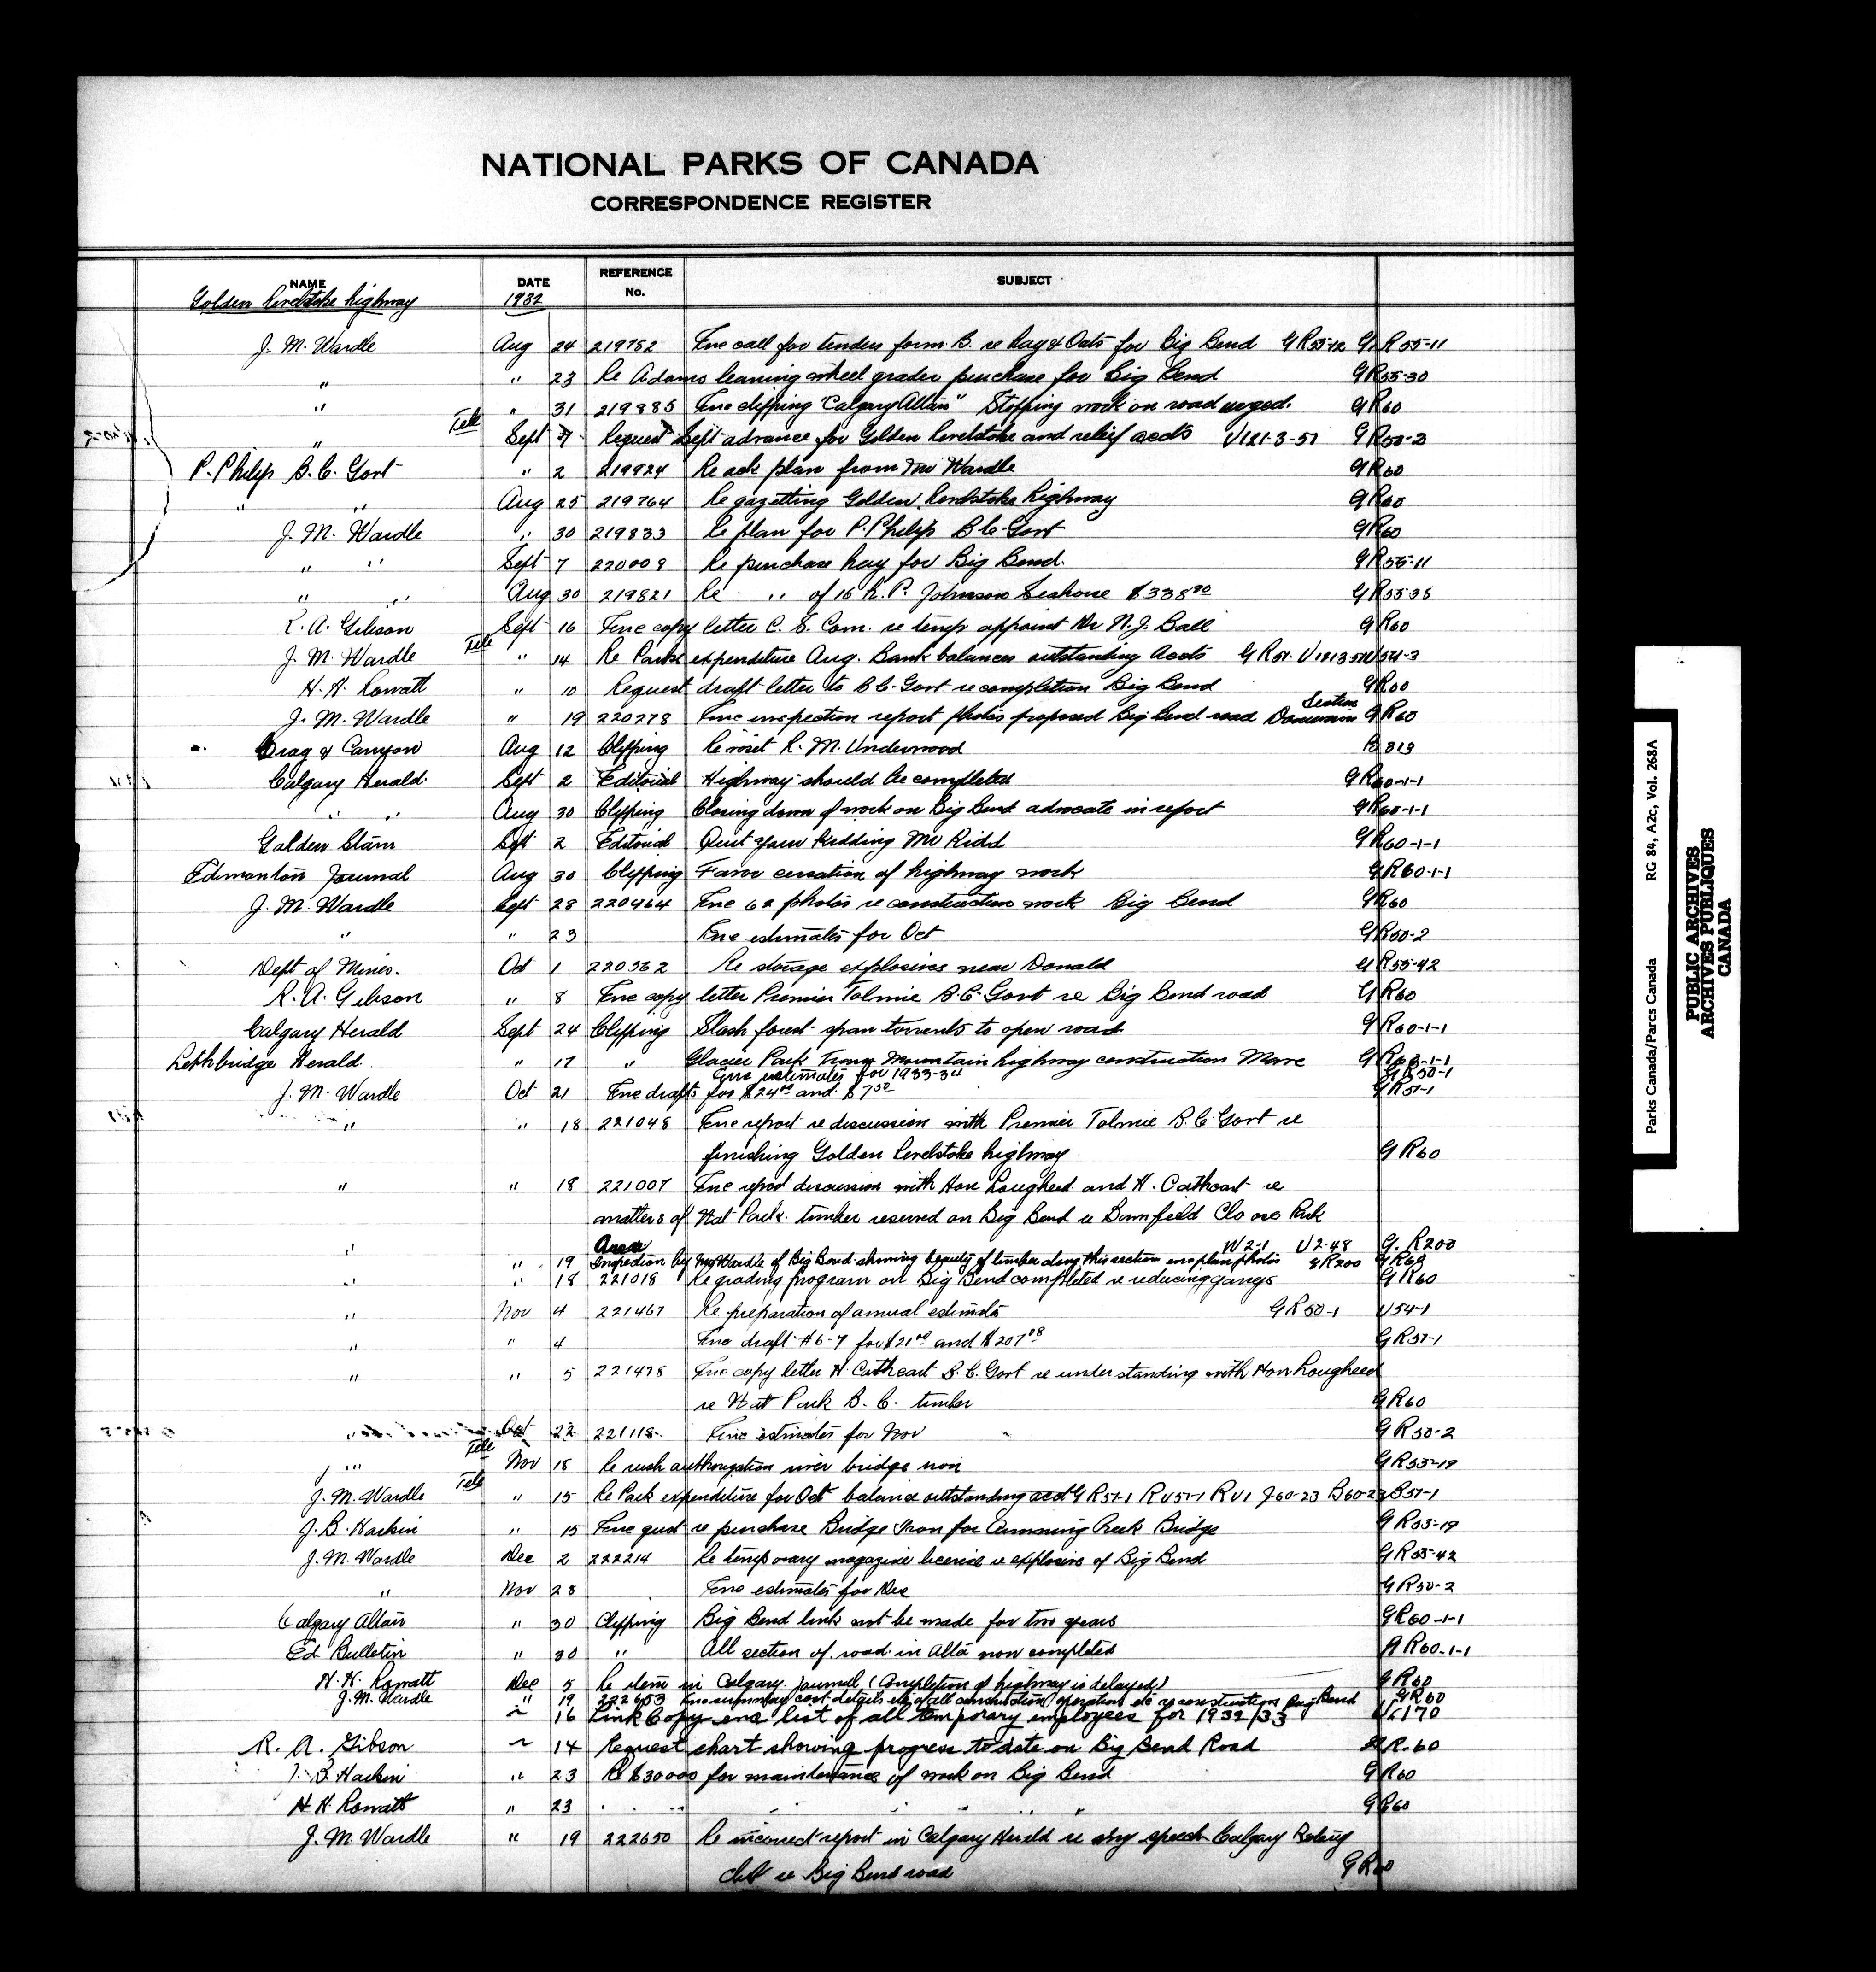 NATIONAL PARKS OF CANADA
CORRESPONDENCE REGISTER
NAME DATE REFERENCE No. SUBJECT
Golden Revelstoke highway 1932
J. M. Wardle Aug 24 219752 Enc call for tenders form B. re hay & Oats for Big Bend GR55-12 GR55-11
" " 23 Re Adams leaning wheel grader purchase for Big Bend GR55-30
" " 31 219885 Enc clipping "Calgary Altan" Stopping work on road urged. GR60
" Tele Sept 7 Request Sept advance for Golden Revelstoke and relief accts U121-3-51 GR50-3
P. Philip B.C. Govt " 2 219924 Re ack plan from Mr Wardle GR60
" " Aug 25 219764 Re gazetting Golden Revelstoke highway GR60
J. M. Wardle " 30 219833 Re plan for P. Philip B.C. Govt GR60
" " Sept 7 220008 Re purchase hay for Big Bend. GR55-11
" " Aug 30 219821 Re " of 16 H.P. Johnson Seahorse $338.00 GR55-35
R. A. Gibson Sept 16 Enc copy letter C. S. Com. re temp appoint Mr N. J. Ball GR60
J. M. Wardle Tele " 14 Re Parks expenditure Aug. Bank balances outstanding Accts GR51 U54-3
H. H. Rowatt " 10 Request draft letter to B.C. Govt re completion Big Bend GR60
J. M. Wardle " 19 220278 Enc inspection report photos proposed Big Bend road Dominion Section GR60
Crag & Canyon Aug 12 Clipping Re visit R. M. Underwood B313
Calgary Herald Sept 2 Editorial Highway should be completed GR60-1-1
" " Aug 30 Clipping Closing down of work on Big Bend advocate in report GR60-1-1
Golden Star Sept 2 Editorial Quit your Kidding Mr Ridd GR60-1-1
Edmonton Journal Aug 30 Clipping Favor cessation of highway work GR60-1-1
J. M. Wardle Sept 28 220464 Enc 62 photos re construction work Big Bend GR60
" " 23 Enc estimates for Oct GR50-2
Dept of Mines. Oct 1 220562 Re storage explosives near Donald GR55-42
R. A. Gibson " 8 Enc copy letter Premier Tolmie B.C. Govt re Big Bend road GR60
Calgary Herald Sept 24 Clipping Slash forest span torrents to open road GR60-1-1
Lethbridge Herald " 17 " Glacier Park Trans Mountain highway construction GR60-1-1
Enc estimates for 1933-34 GR50-1
J. M. Wardle Oct 21 Enc drafts for $24.00 and $7.50 GR51-1
" " 18 221048 Enc report re discussion with Premier Tolmie B.C. Govt re
finishing Golden Revelstoke highway GR60
" " 18 221007 Enc report discussion with Hon Lougheed and H. Cathcart re
matters of Nat Park. timber reserved on Big Bend re
Area W2-1 U2-48 G. R200
" " 19 Inspection by Mr Wardle of Big Bend showing beauty of timber along this section enc plan photos GR200 GR60
" " 18 221018 Re grading program on Big Bend completed re reducing gangs GR60
" Nov 4 221467 Re preparation of annual estimates GR50-1 U54-1
" " 4 Enc draft #6-7 for $21.00 and $207.08 GR51-1
" " 5 221478 Enc copy letter H. Cathcart B.C. Govt re understanding with Hon Lougheed
re Nat Park B.C. timber GR60
" Oct 22 221118 Enc estimates for Nov GR50-2
" Tele Nov 18 Re rush authorization river bridge iron GR53-19
J. M. Wardle Tele " 15 Re Park expenditure for Oct balance outstanding acct GR51-1 RU51-1 RU1 J60-23 B60-23 B51-1
J. B. Harkin " 15 Enc quot re purchase Bridge Iron for Cummins Creek Bridge GR53-19
J. M. Wardle Dec 2 222214 Re temporary magazine license re explosive of Big Bend GR55-42
" Nov 28 Enc estimates for Dec GR50-2
Calgary Altan " 30 Clipping Big Bend link not be made for two years GR60-1-1
Ed Bulletin " 30 " All section of road in Alta now completed GR60-1-1
H. H. Rowatt Dec 5 Re item in Calgary Journal (Completion of highway is delayed) GR60
J. M. Wardle " 19 222653 Enc summary cost details etc of all construction operations etc re construction Big Bend GR60
" 16 Link Copy enc list of all temporary employees for 1932/33 U170
R. A. Gibson " 14 Request chart showing progress to date on Big Bend Road GR.60
J. B. Harkin " 23 Re $30000 for maintenance of work on Big Bend GR60
H. H. Rowatt " 23 " " " " " GR60
J. M. Wardle " 19 222650 Re incorrect report in Calgary Herald re my speech Calgary Rotary
club re Big Bend road GR60
Parks Canada/Parcs Canada RG 84, A2c, Vol. 268A
PUBLIC ARCHIVES
ARCHIVES PUBLIQUES
CANADA